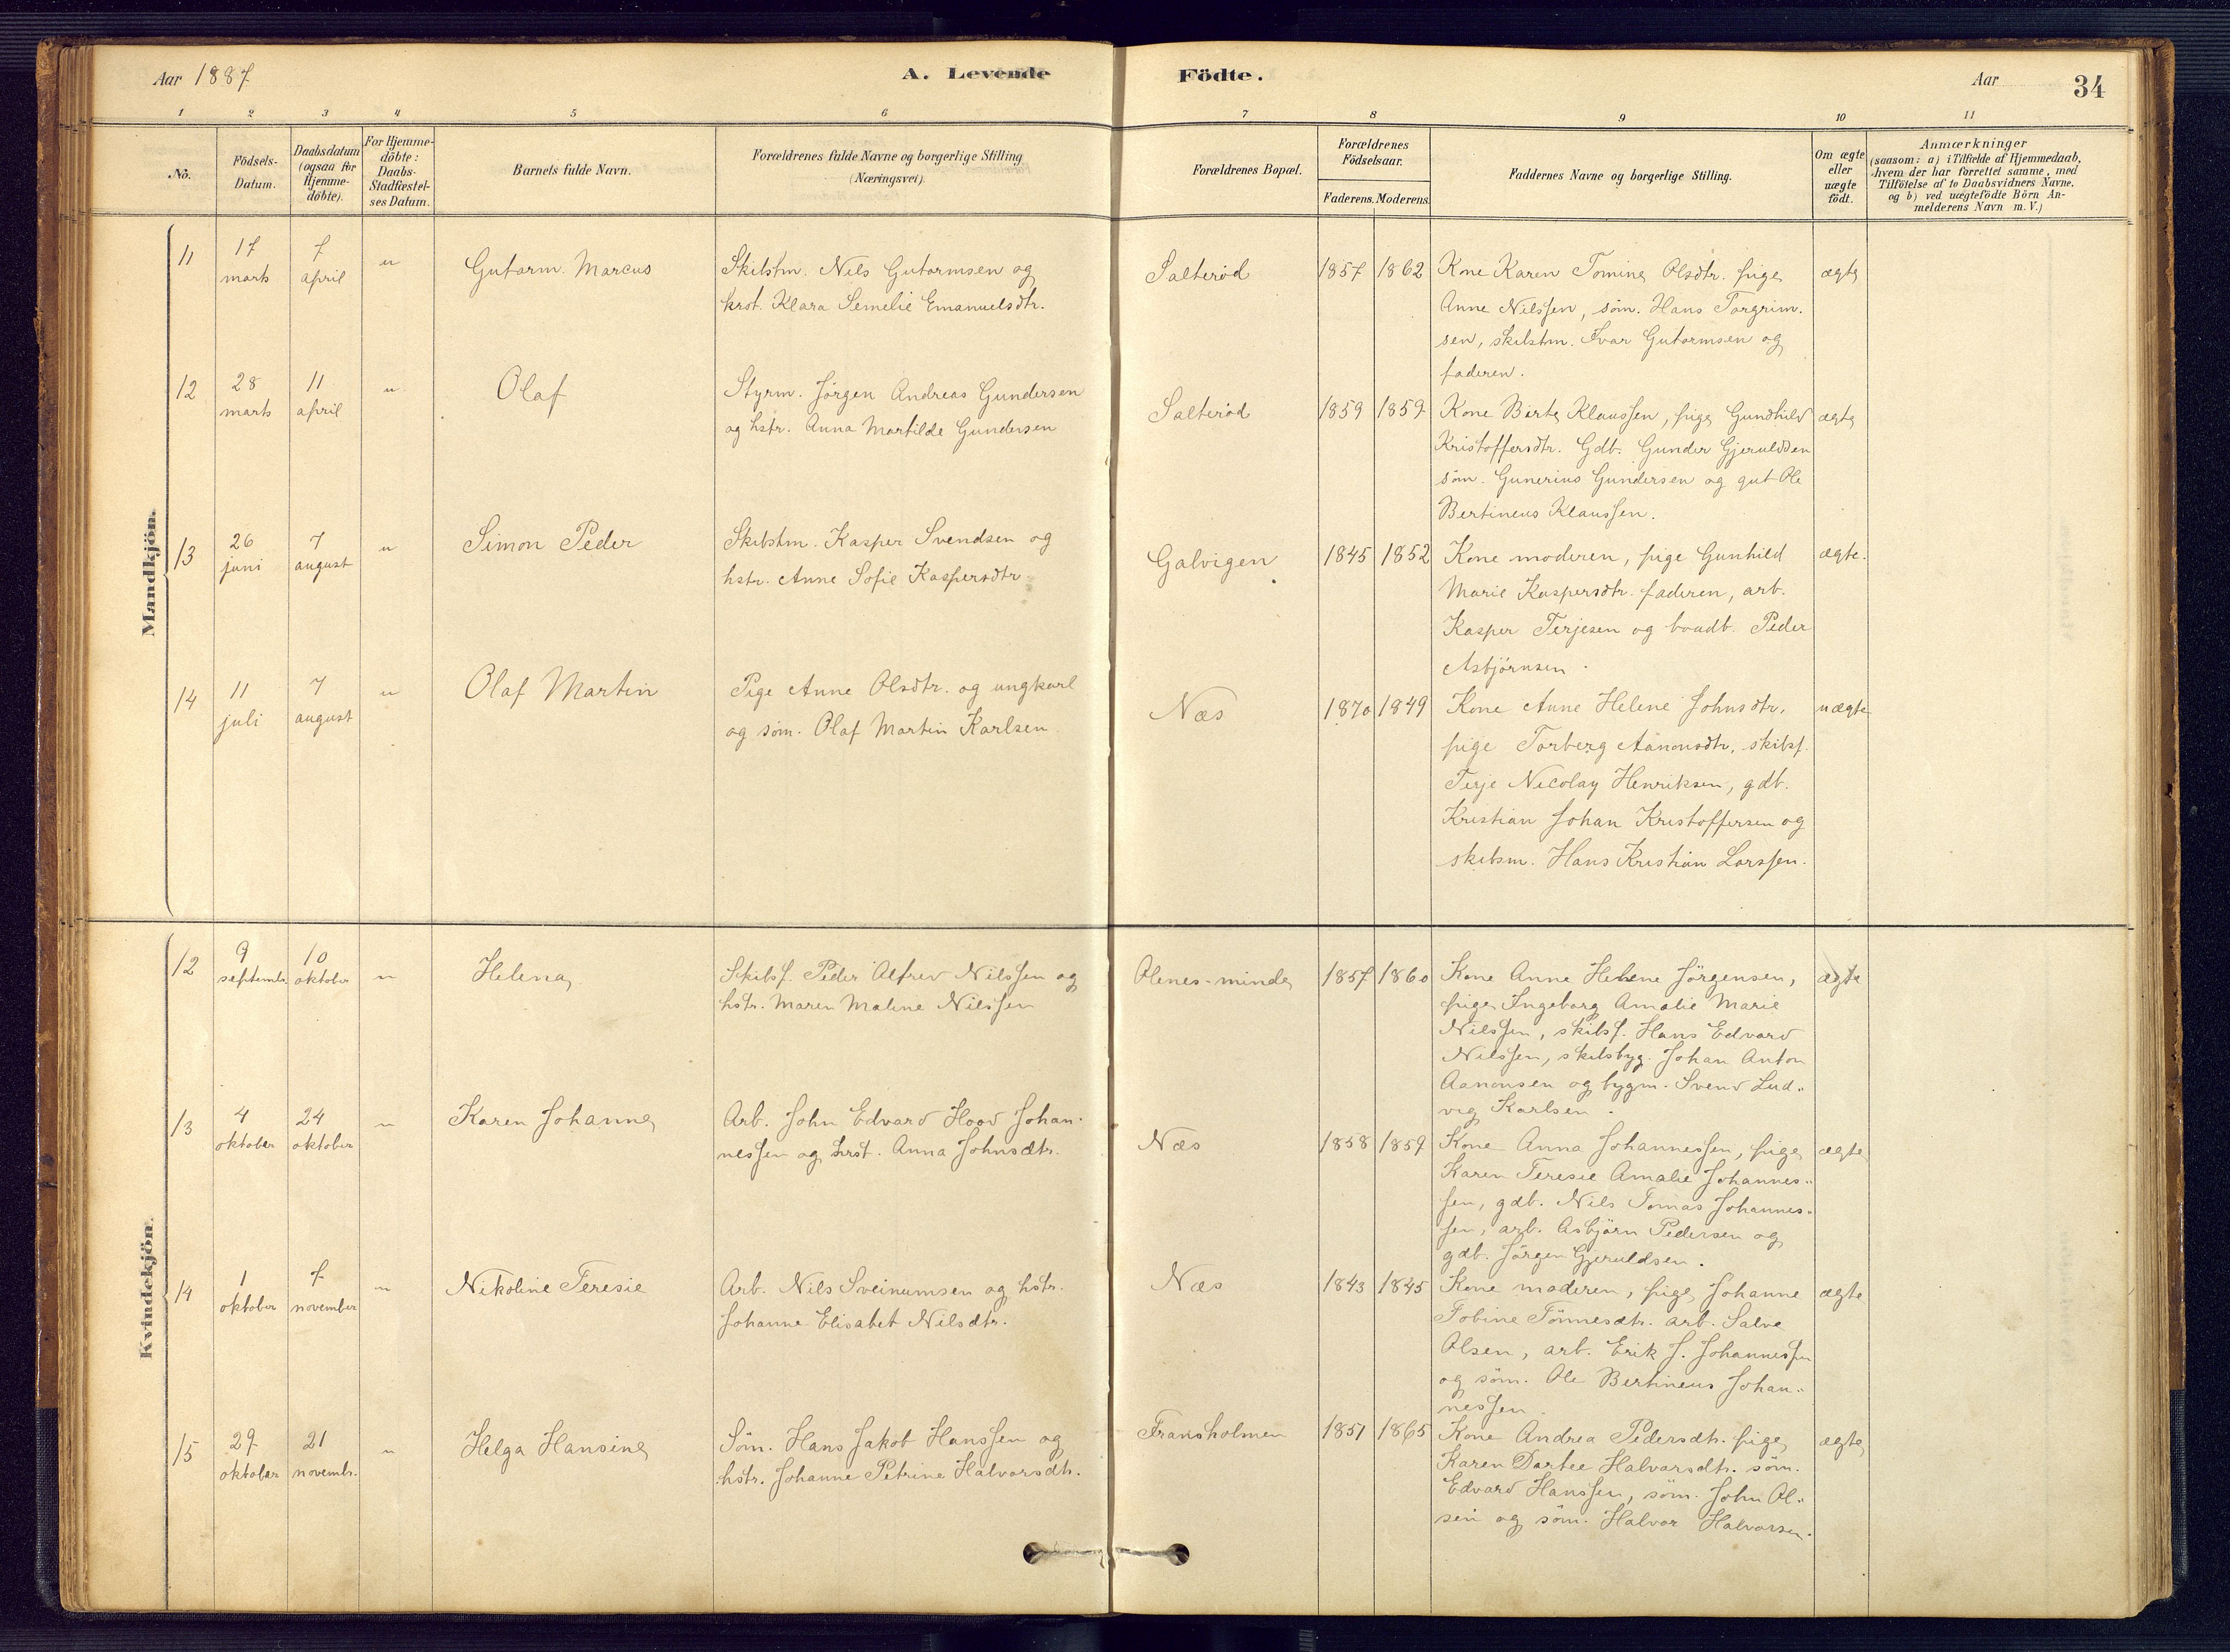 Aar 1887
A. Levende Födte.
Aar
34
1 2 3 4 5 6 7 8 9 10 11
No.
Födsels-
Datum.
Daabsdatum
(ogsaa for
Hjemme-
döbte).
For Hjemme-
döbte:
Daabs-
Stadfæstel-
ses Datum.
Barnets fulde Navn.
Forældrenes fulde Navne og borgerlige Stilling
(Næringsvei).
Forældrenes Bopæl.
Forældrenes
Födselsaar.
Faderens. Moderens.
Faddernes Navne og borgerlige Stilling.
Om ægte
eller
uægte
födt.
Anmærkninger
(saasom: a) i Tilfælde af Hjemmedaab,
hvem der har forrettet samme, med
Tilföielse af to Daabsvidners Navne,
og b) ved uægtefödte Börn An-
melderens Navn m. V.)
Mandkjön.
11
17
marts
7
april
"
Gutorm Marcus
Skibstm. Nils Gutormsen og
hrst. Klara Semelie Emanuelsdtr.
Salteröd
1857 1862
Kone Karen Tomine Olsdtr. pige
Anne Nilssen, söm. Hans Torgrim.
sen, skibstm. Ivar Gutormsen og
faderen.
ægte
12
28
marts
11
april
"
Olaf
Styrm. Jörgen Andreas Gundersen
og hstr. Anna Martilde Gundersen
Salteröd
1859 1859
Kone Birte Klaussen, pige Gundhild
Kristoffersdtr. Gdb. Gunder Gjeruldsen
söm. Gunerius Gundersen og gut Ole
Bertineus Klaussen.
ægte
13
26
juni
7
august
"
Simon Peder
Skibstm. Kasper Svendsen og
hstr. Anne Sofie Kaspersdtr.
Galvigen
1845 1852
Kone moderen, pige Gunhild
Marie Kaspersdtr. faderen, arb.
Kasper Terjesen og Peder
Asbjörnsen.
ægte.
14
11
juli
7
august
"
Olaf Martin
Pige Anne Olsdtr. og ungkarl
og söm. Olaf Martin Karlsen
Næs
1870 1849
Kone Anne Helene Johnsdtr.
pige Torberg Aanonsdtr, skibsf.
Terje Nicolay Henriksen, gdb.
Kristian Johan Kristoffersen og
skibsm. Hans Kristian Larssen.
uægte
Kvindekjön.
12
9
septembr.
10
oktober
"
Helena
Skibsf. Peder Alfred Nilssen og
hstr. Maren Maline Nilssen
Olenes-minde
1857 1860
Kone Anne Helene Jörgensen,
pige Ingeborg Amalie Marie
Nilssen, skibsf. Hans Edvard
Nilssen, skibsbyg. Johan Anton
Aanonsen og bygm. Svend Lud-
vig Karlsen.
ægte
13
4
oktober
24
oktober
"
Karen Johanne
Arb. John Edvard Hood Johan-
nessen og hrst. Anna Johnsdtr.
Næs
1858 1859
Kone Anna Johannessen, pige
Karen Teresie Amalie Johannes-
sen, gdb. Nils Tomas Johannes-
sen, arb. Asbjörn Pedersen og
gdb. Jörgen Gjeruldsen.
ægte
14
1
oktober
7
november
"
Nikoline Teresie
Arb. Nils Sveinumsen og hstr.
Johanne Elisabet Nilsdtr.
Næs
1843 1845
Kone moderen, pige Johanne
Tobine Tönnesdtr. arb. Salve
Olsen, arb. Erik J. Johannessen
og söm. Ole Bertineus Johan-
nessen
ægte
15
29
oktober
21
novembr.
"
Helga Hansine
Söm. Hans Jakob Hanssen og
hstr. Johanne Petrine Halvorsdtr.
Fransholmen
1851 1865
Kone Andrea Pedersdtr. pige
Karen Dortee Halvorsdtr. söm.
Edvard Hanssen, söm. John Ol-
sen og söm. Halvor Halvorsen.
ægte